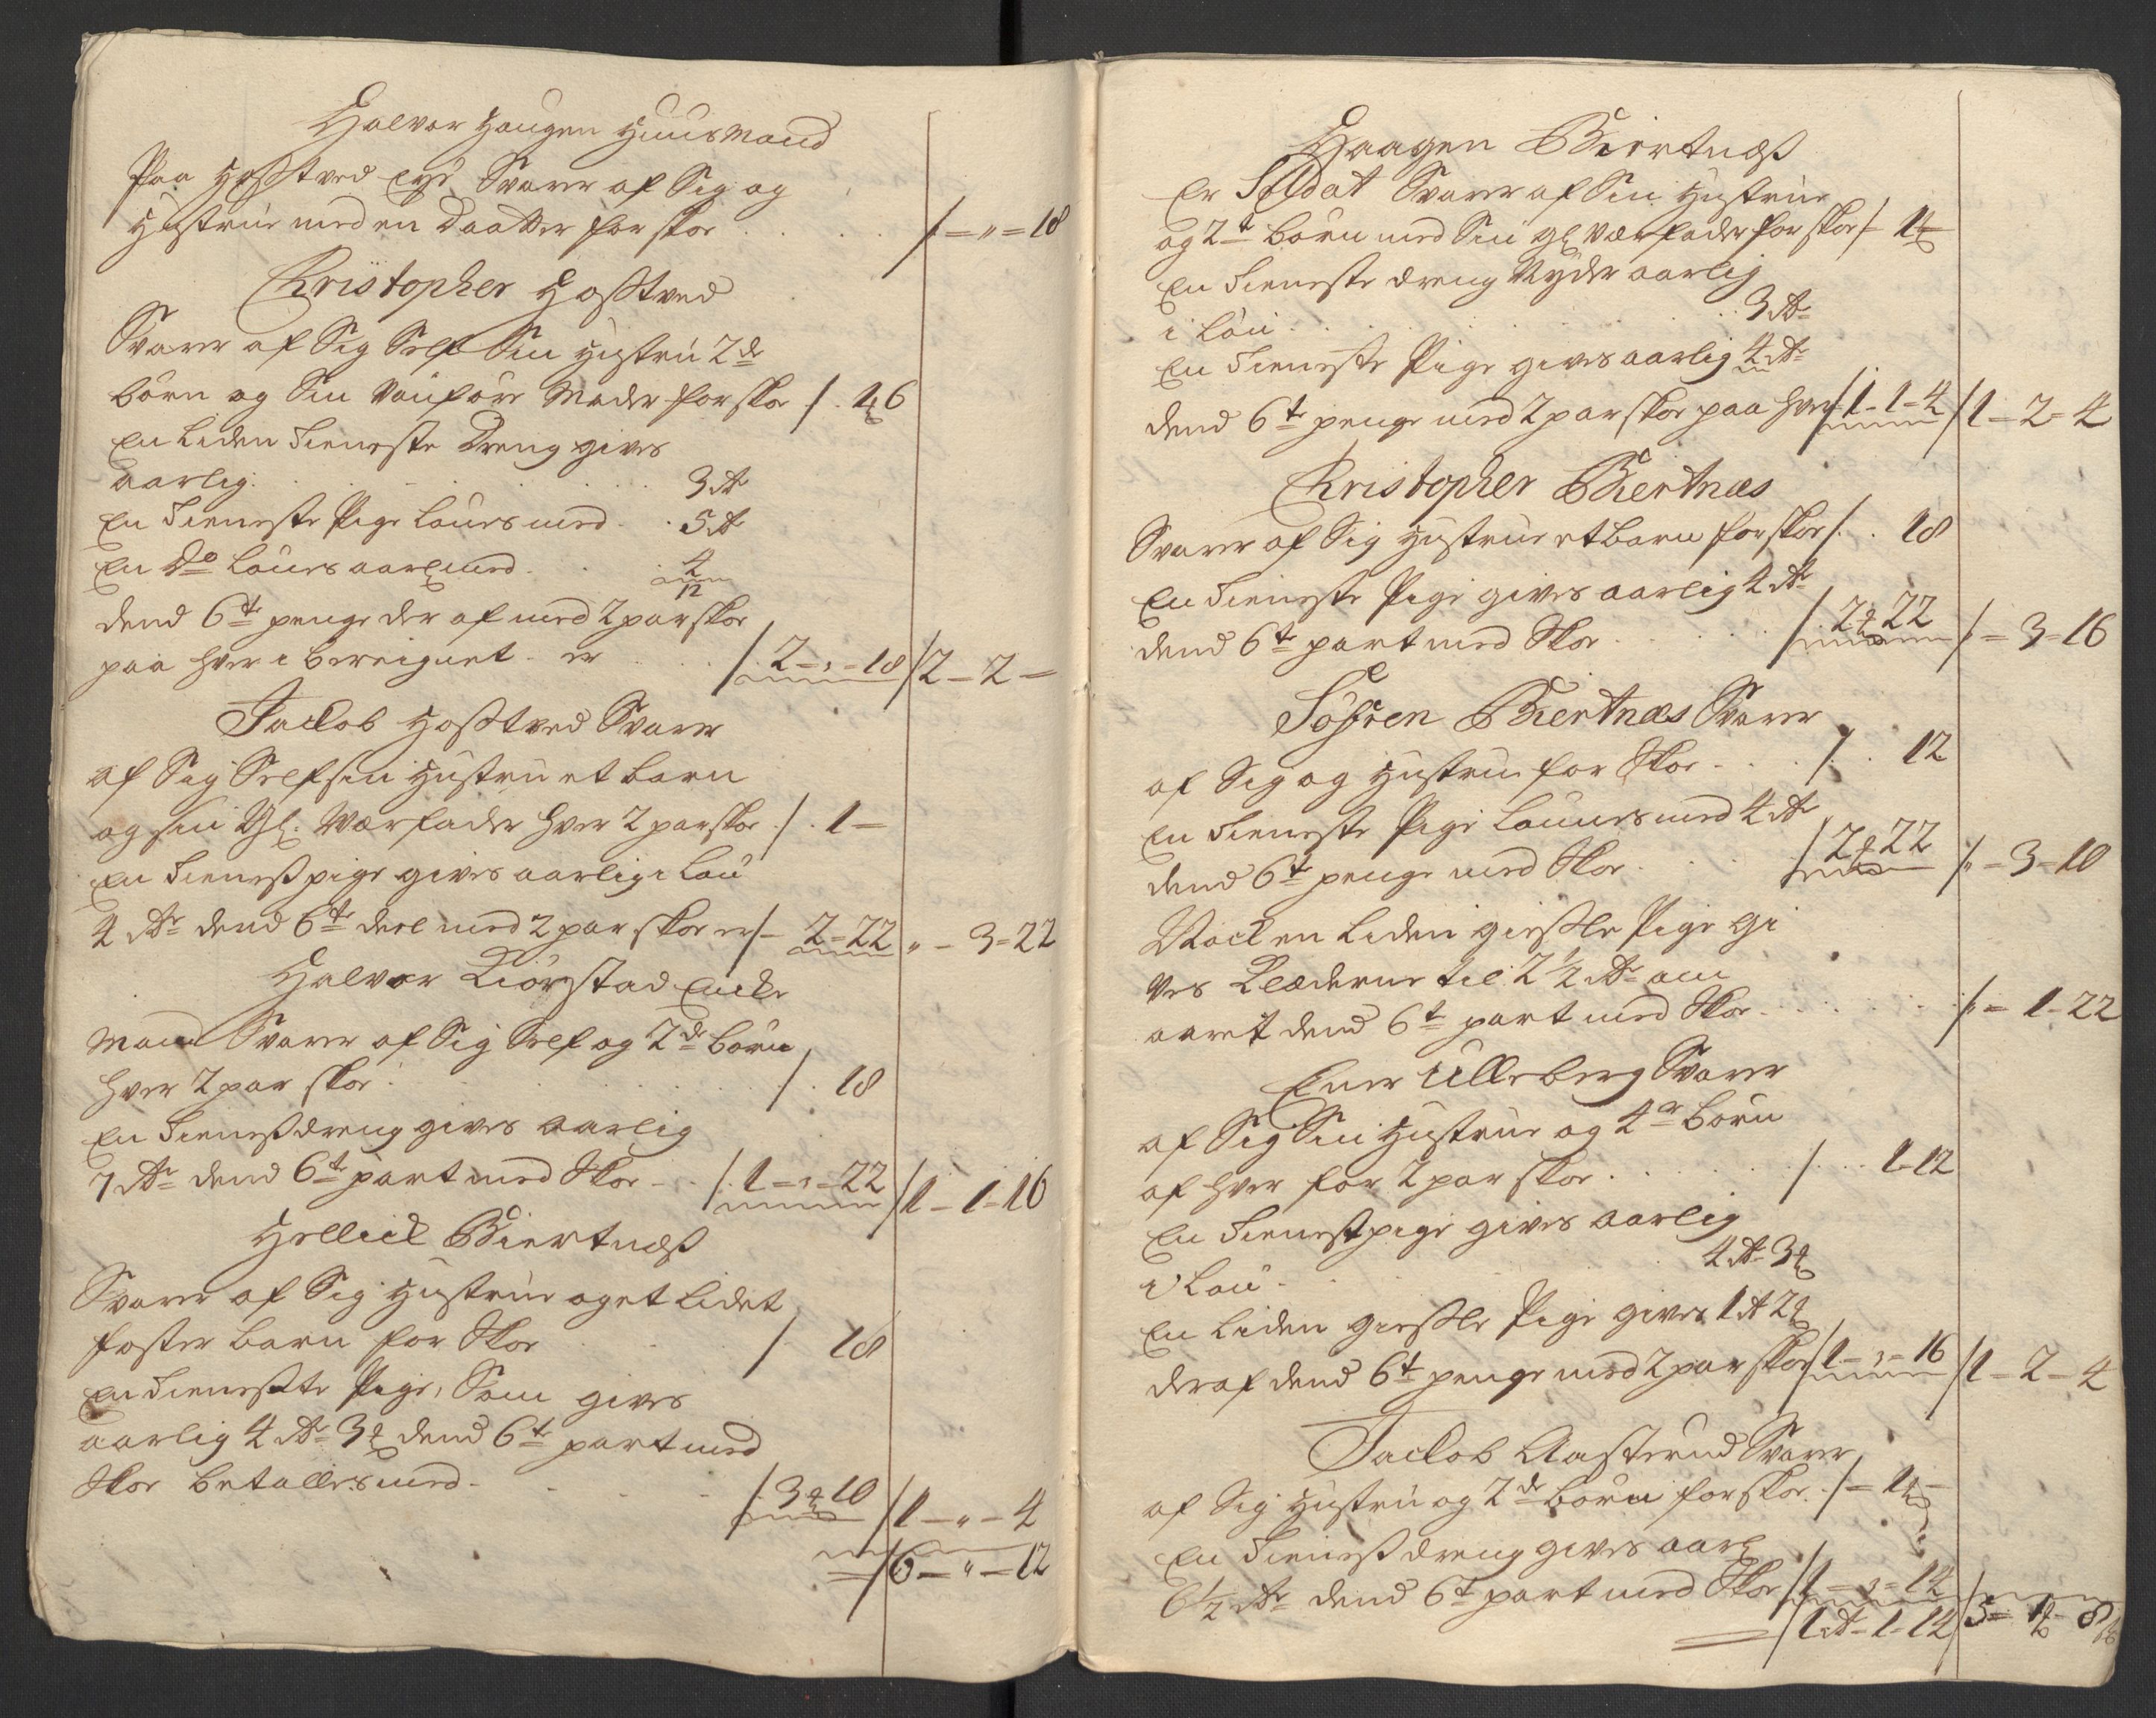 Halvor Haugen Huusmand
Paa Hoßtved Eyé Svarer af Sig og
Hustrue med en Daatter for skoe . . . . /–„=18
Christopher Hoßtved
Svarer af Sig Self Sin Hustru 2de
börn og Sin Vanföre Moder for skoe /. 1 6
En Liden Tieneste Dreng gives
aarlig . . . . . . . . 3 dr
En Tieneste Pige lönes med . . 5 dr
En Do lönes aarl med . . 4
12
dend 6te penge der af med 2 par skoe
paa hver i bereignet er . . . /.2–„–18 /2–2–
Jackob Hoßtved Svarer
af Sig Self sin Hustru et barn
og sin Gl. Værfader hver 2 par skoe ./. 1–
En Tieneß pige gives aarlig i Lön
4 dr dend 6te deel med 2 par skoe er /– 2=22 „–3=22
Halvor Liörstad Encke
Mand Svarer af Sig Self og 2de börn
hver 2 par skoe . . . . . . /. 18
En Tieneß dreng gives aarlig
7 dr dend 6te part med Skoe – . /.1–„–22 /1–1–16
Hellick Biertnæß
Svarer af Sig Hustrue og et lidet
foster barn for Skoe /. 18
En Tieneste Pige, Som gives
aarlig 4 dr 3 dend 6te part med
Skoe betalles med . . . /.3 10 /1–„–4
/6–„–12
Haagen Biertnæß
Er Soldat Svarer af Sin Hustrue
og 2de börn med Sin gl værfader for skoe /– 1
En Tieneste dreng Nyder aarlig
i Lön . . . . . . . . 3 dr
En Tieneste Pige gives aarlig 4 dr
dend 6te penge med 2 par skoe paa hver /1–1–4 /1–2–4
Christopher Biertnæs
Svarer af Sig Hustrue et barn for skoe /. . 18
En Tieneste Pige gives aarlig 4 dr
dend 6te part med Skoe . . . . /.2 22 /„=3=16
Söfren Biertnæs Svarer
af Sig og Hustrue for Skoe . . . /. . 12
En Tieneste Pige lönnes med 4 dr
dend 6te penge med Skoe . . . /2 22 /„=3=10
Nock en Liden gießle Pige gi
ves Klæderne til 2½ dr om
aaret dend 6te part med Skoe . . . . . . /„=1–22
Ener Ulleberg Svarer
af Sig Sin Hustrue og 4re börn
af hver for 2 par skoe . . . . . /. . 1–12
En Tienest pige gives aarlig
i Lön . . . . . . . 4 dr 3
En Liden gießle Pige gives 1 dr 2
der af dend 6te penge med 2 par skoe /1–„–16 /1–2–4
Jackob Aasterud Svarer
af Sig Hustru og 2de börn for skoe ./– 1
En Tieneß dreng gives aarl
6½ dr dend 6te part med Skoe /1–„–14
/1 dr–1–14 /5= 1 – 8